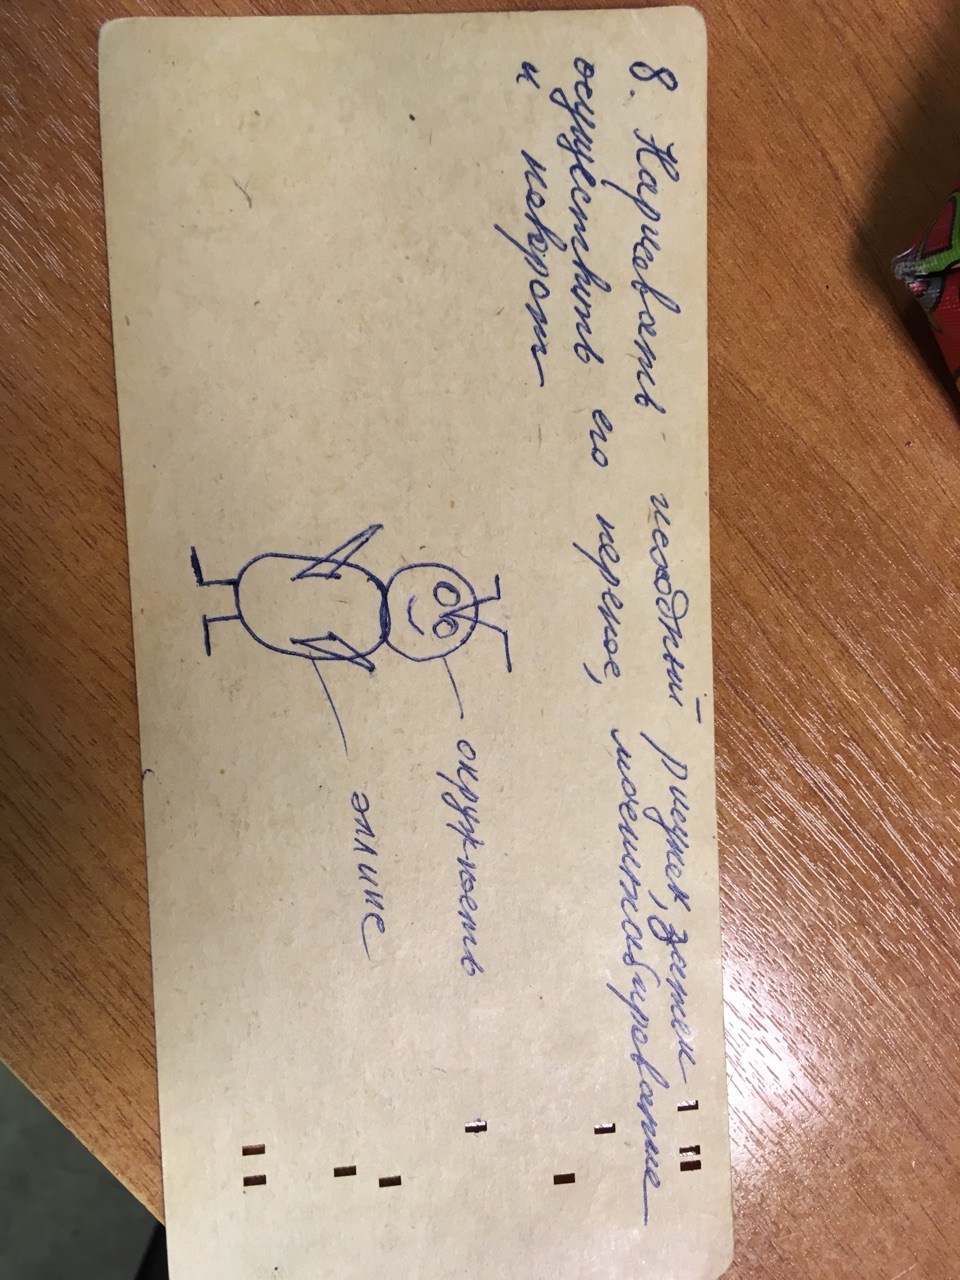 8. Нарисовать исходный рисунок, затем
осуществить его перенос, масштабирование
и поворот
окружность
эллипс